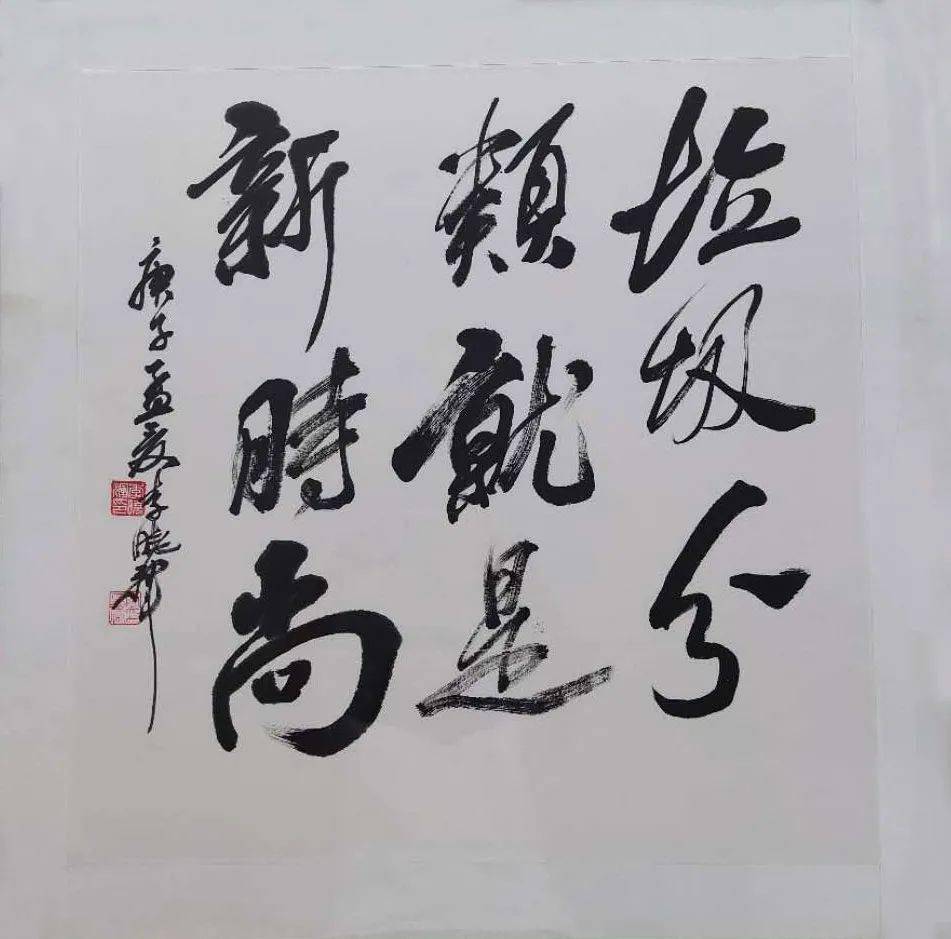 垃圾分
類就是
新時尚
庚子孟夏李晓輝